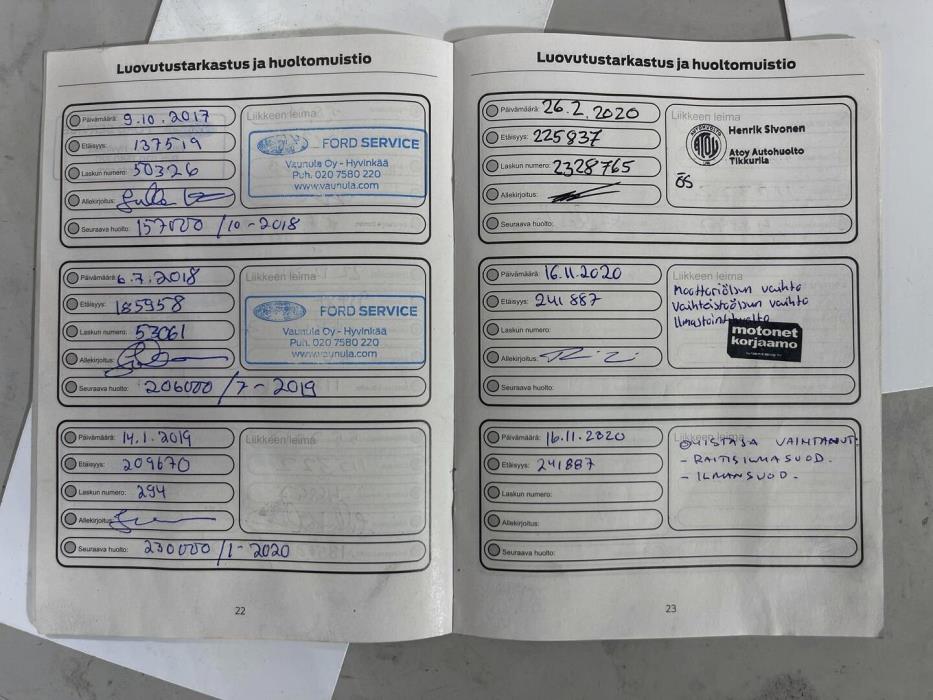 Luovutustarkastus ja huoltomuistio
Päivämäärä: 9.10.2017
Etäisyys: 137519
Laskun numero: 50326
Allekirjoitus:
Seuraava huolto: 157000 /10-2018
Liikkeen leima:
FORD SERVICE
Vaunula Oy - Hyvinkää
Puh. 020 7580 220
www.vaunula.com
Päivämäärä: 6.7.2018
Etäisyys: 185958
Laskun numero: 53061
Allekirjoitus:
Seuraava huolto: 206000 /7-2019
Liikkeen leima
FORD SERVICE
Vaunula Oy - Hyvinkää
Puh. 020 7580 220
www.vaunula.com
Päivämäärä: 14.1.2019
Etäisyys: 209670
Laskun numero: 294
Allekirjoitus:
Seuraava huolto: 230000 /1-2020
Liikkeen leima
22
Luovutustarkastus ja huoltomuistio
Päivämäärä: 26.2.2020
Etäisyys: 225837
Laskun numero: 2328765
Allekirjoitus:
Seuraava huolto:
Liikkeen leima
AUTOHUOLTO
ATOY
Henrik Sivonen
Atoy Autohuolto
Tikkurila
ÖS
Päivämäärä: 16.11.2020
Etäisyys: 241887
Laskun numero:
Allekirjoitus:
Seuraava huolto:
Liikkeen leima
Moottoriöljyn vaihto
Vaihteistoöljyn vaihto
motonet
korjaamo
Päivämäärä: 16.11.2020
Etäisyys: 241887
Laskun numero:
Allekirjoitus:
Seuraava huolto:
Liikkeen leima
OMISTAJA VAIHTANUT:
- RAITISILMASUOD.
- ILMANSUOD.
23